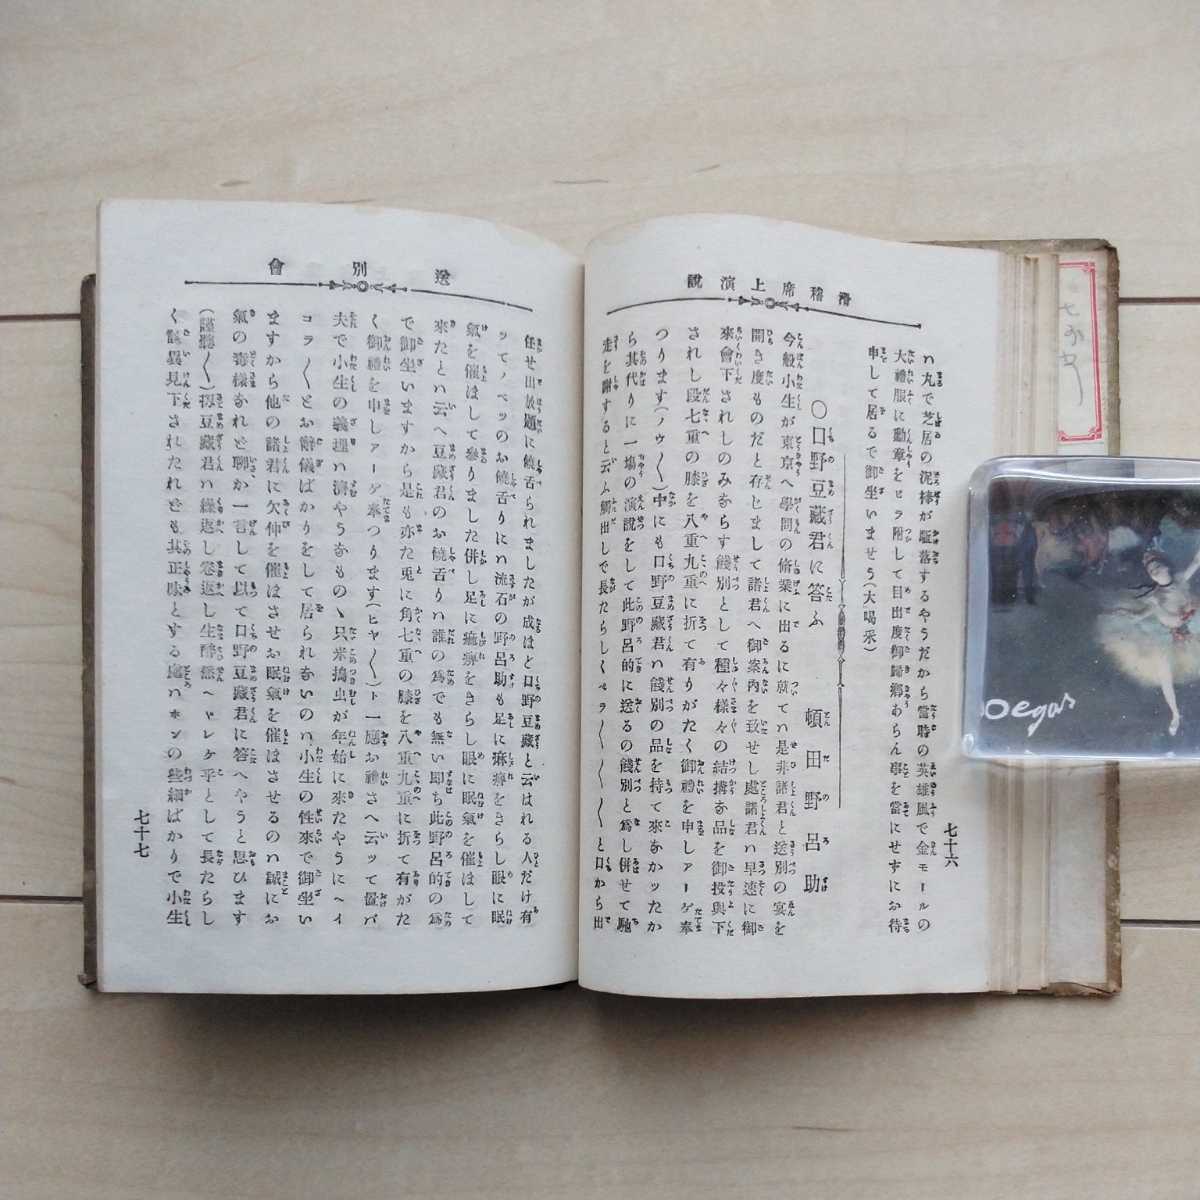 滑稽席上演說
ハ丸で芝居の泥棒が駈落するやうだから當時の英雄風で金モールの
大禮服に勳章をヒラ附して目出度御歸鄕あらん事を當にせずにお待
申して居るで御坐いませう(大喝采)
〇口野豆藏君に答ふ 頓田野呂助
今般小生が東京へ學問の脩業に出るに就てハ是非諸君と送別の宴を
開き度ものだと存じまして諸君へ御案內を致せし處諸君ハ早速に御
來會下されしのみならす餞別として種々樣々の結搆な品を御投與下
されし段七重の膝を八重九重に折て有りがたく御禮を申しアーゲ奉
つります(ノウ〱)中にも口野豆藏君ハ餞別の品を持て來なかッたか
ら其代りに一塲の演說をして此野呂的に送るの餞別と爲し併せて馳
走を謝すると云ふ觸出しで長たらしくペラ〱〱〱と口から出
七十六
送別會
任せ出放題に饒舌られましたが成ほど口野豆藏と云はれる人だけ有
ッてノベッのお饒舌りにハ流石の野呂助も足に痲痺をきらし眼に眠
氣を催はして參りました併し足に痲痺をきらし眼に眠氣を催はして
來たとハ云へ豆藏君のお饒舌りハ誰の爲でも無い卽ち此野呂的の爲
で御坐いますから是も亦た兎に角七重の膝を八重九重に折て有がた
く御禮を申しアーゲ奉つります(ヒヤ〱)ト一應お禮さへ云ッて置バ
夫で小生の義理ハ濟やうなものヽ只米搗虫が年始に來たやうにヘイ
コラ〱とお辭儀ばかりをして居られないのハ小生の性來で御坐い
ますから他の諸君に欠伸を催はさせお眠氣を催はさせるのハ誠にお
氣の毒樣なれど聊か一言して以て口野豆藏君に答へやうと思ひます
(謹聽〱)扨豆藏君ハ繰返し卷返し生醉然ヘヤレケ乎として長たらし
く
見下されたれども其正味とする處ハホンの些細ばかりで小生
七十七